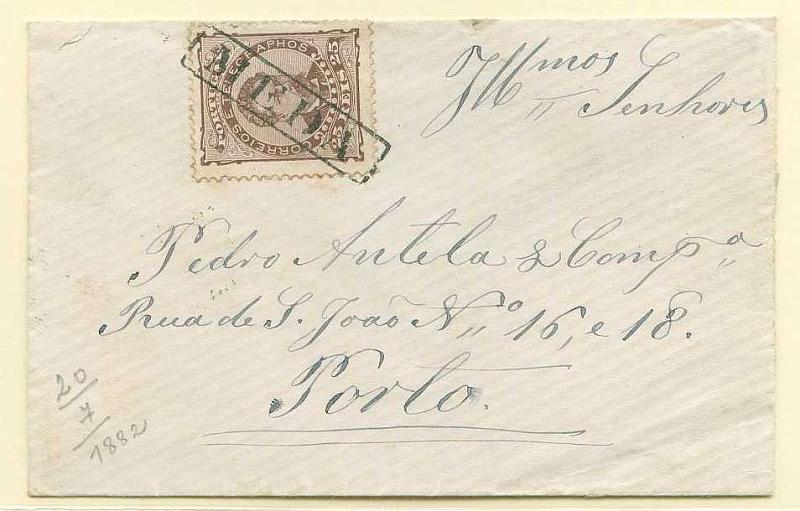 CORREIOS E TELEGRAPHOS
25 25
Illmos
Senhores
Pedro Antela & Compa
Rua de S. João No 16, e 18.
Porto.
20/7/1882